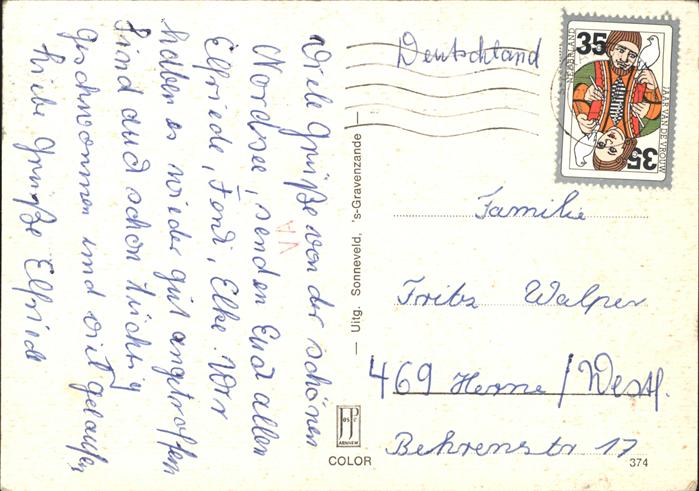 Viele Grüße von der schönen
Nordsee, senden Euch allen
Elfriede, Ferdi, Elke. Wir
haben es wieder gut angetroffen
Sind auch schon tüchtig
geschwommen und viel gelaufen
Liebe Grüße Elfriede
VA
— Uitg. Sonneveld, 's-Gravenzande —
Deutschland
35
NEDERLAND
JAAR VAN DE VROUW
35
Familie
Fritz Walper
469 Herne / Westf.
Behrenstr 17
JOSPÉ
ARNHEM
COLOR
374